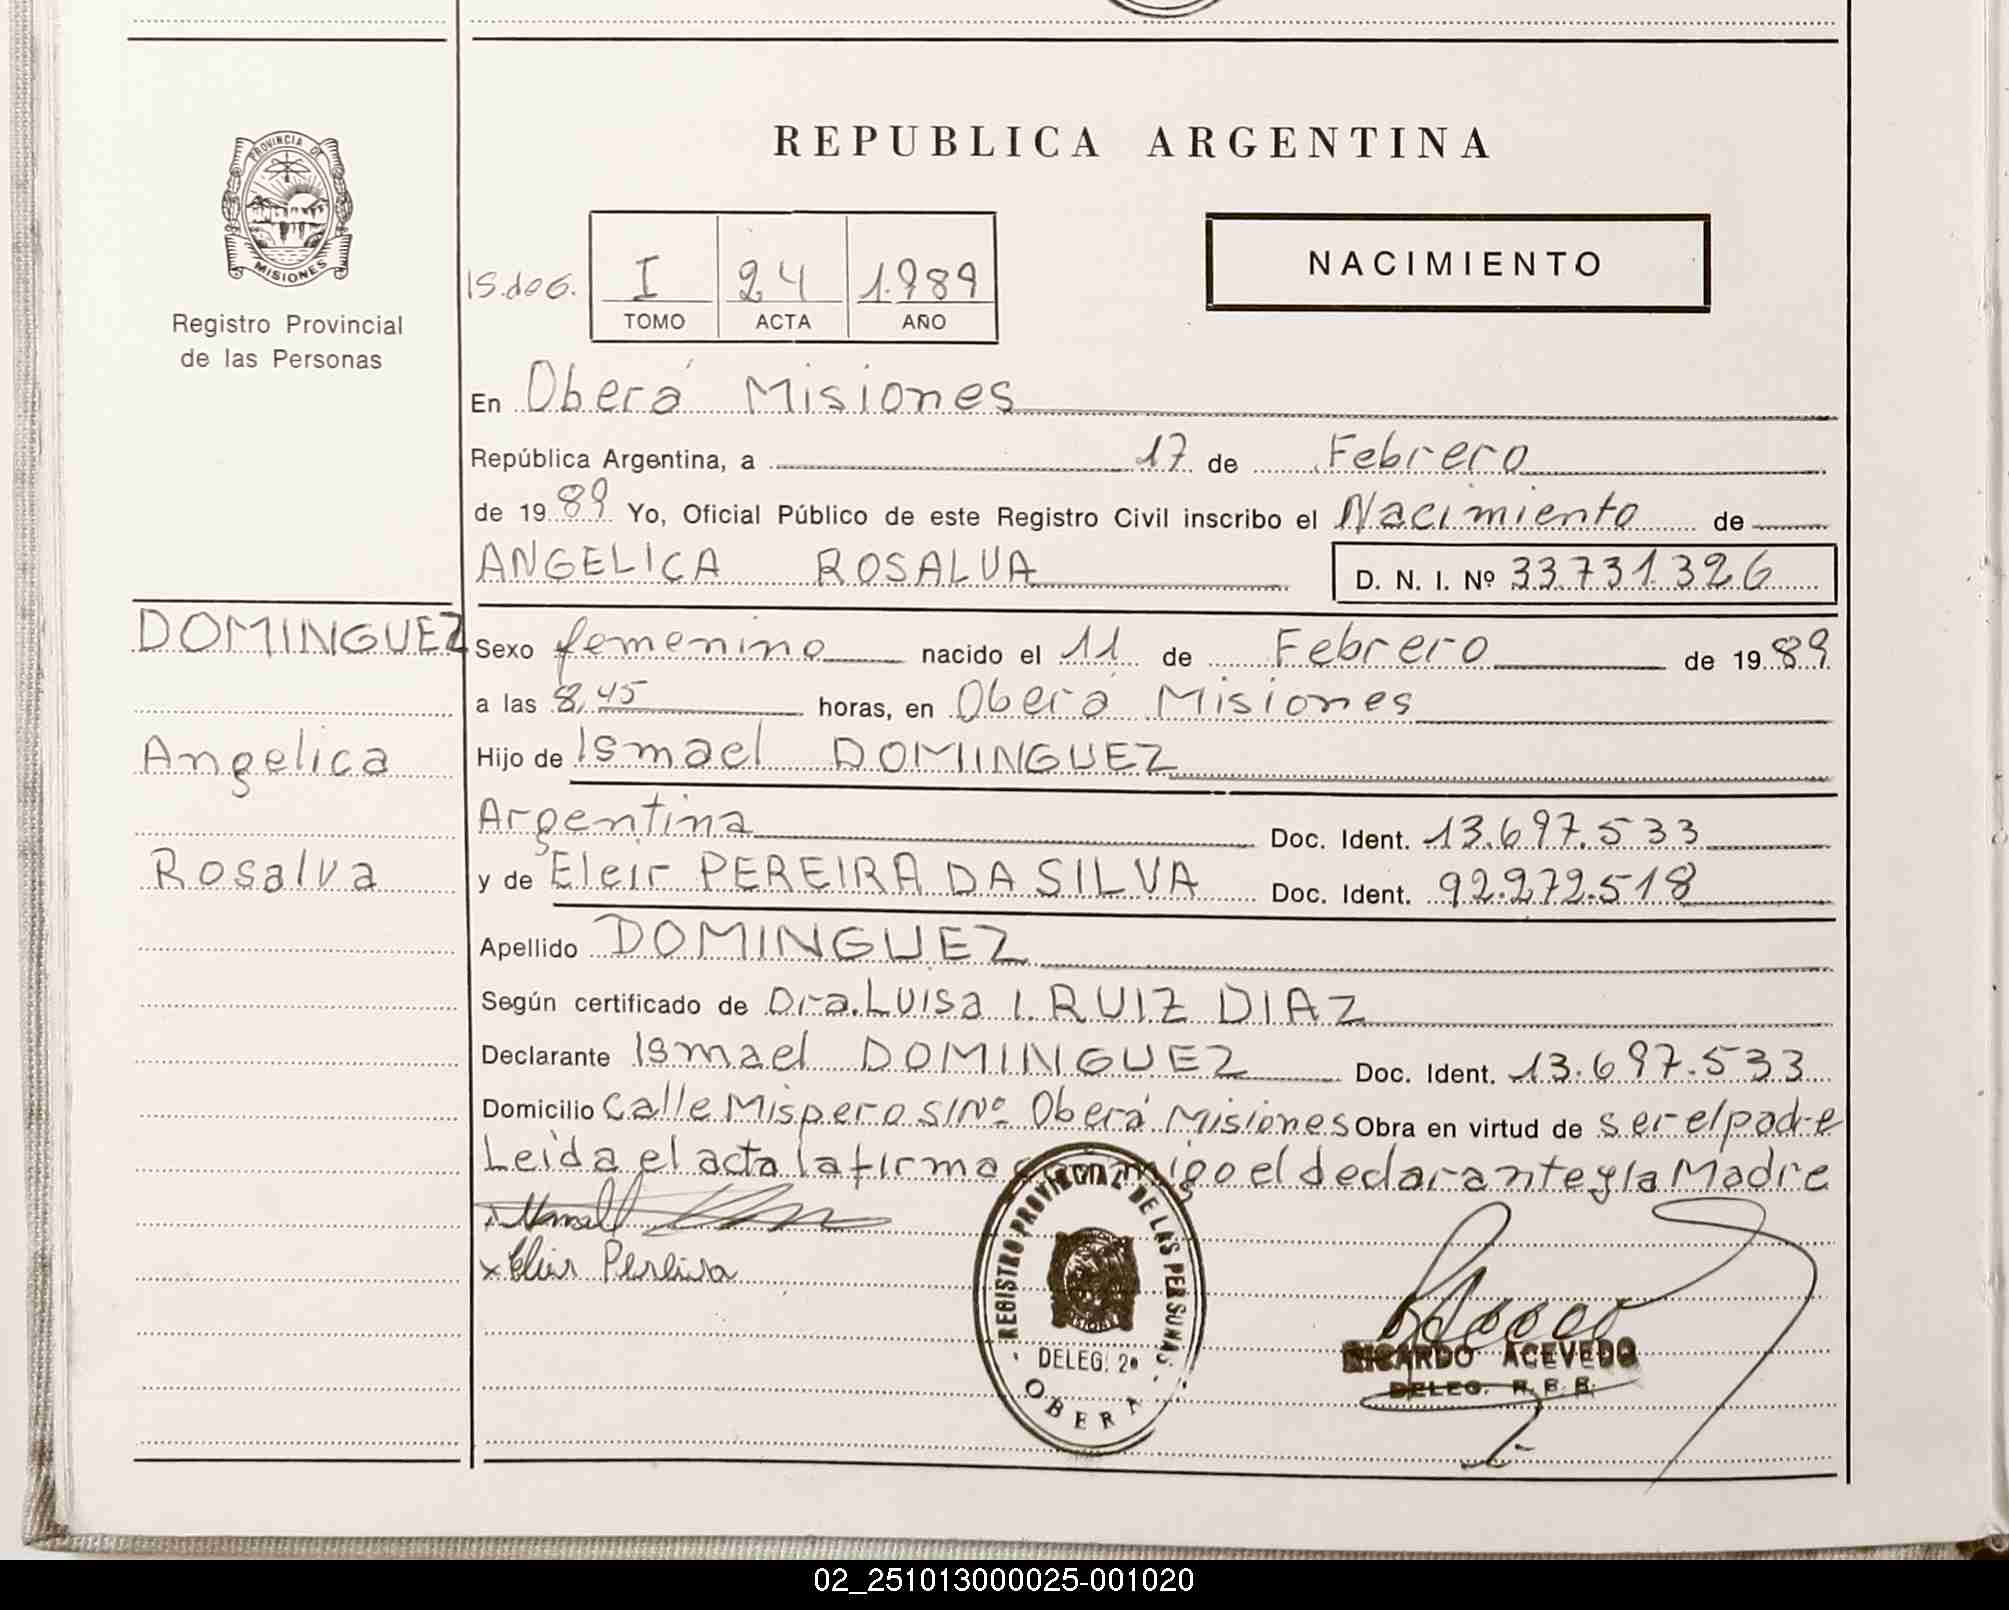 REPUBLICA ARGENTINA
PROVINCIA DE
MISIONES
Registro Provincial
de las Personas
NACIMIENTO
I 24 1.989
TOMO ACTA AÑO
En Oberá Misiones
República Argentina, a 17 de Febrero
de 1989 Yo, Oficial Público de este Registro Civil inscribo el Nacimiento de
ANGELICA ROSALVA D. N. I. Nº 33.731.326
DOMINGUEZ
Angelica
Rosalva
Sexo femenino nacido el 11 de Febrero de 1989
a las 8,45 horas, en Oberá Misiones
Hijo de Ismael DOMINGUEZ
Argentina Doc. Ident. 13.697.533
y de Eleir PEREIRA DA SILVA Doc. Ident. 92.272.518
Apellido DOMINGUEZ
Según certificado de Dra. Luisa I. RUIZ DIAZ
Declarante Ismael DOMINGUEZ Doc. Ident. 13.697.533
Domicilio Calle Mispero S/Nº Oberá Misiones Obra en virtud de ser el padre
Leida el acta la firma conmigo el declarante y la Madre
x Eleir Pereira
REGISTRO PROVINCIAL DE LAS PERSONAS
DELEG. 2ª
OBERA
RICARDO ACEVEDO
DELEG.
02_251013000025-001020